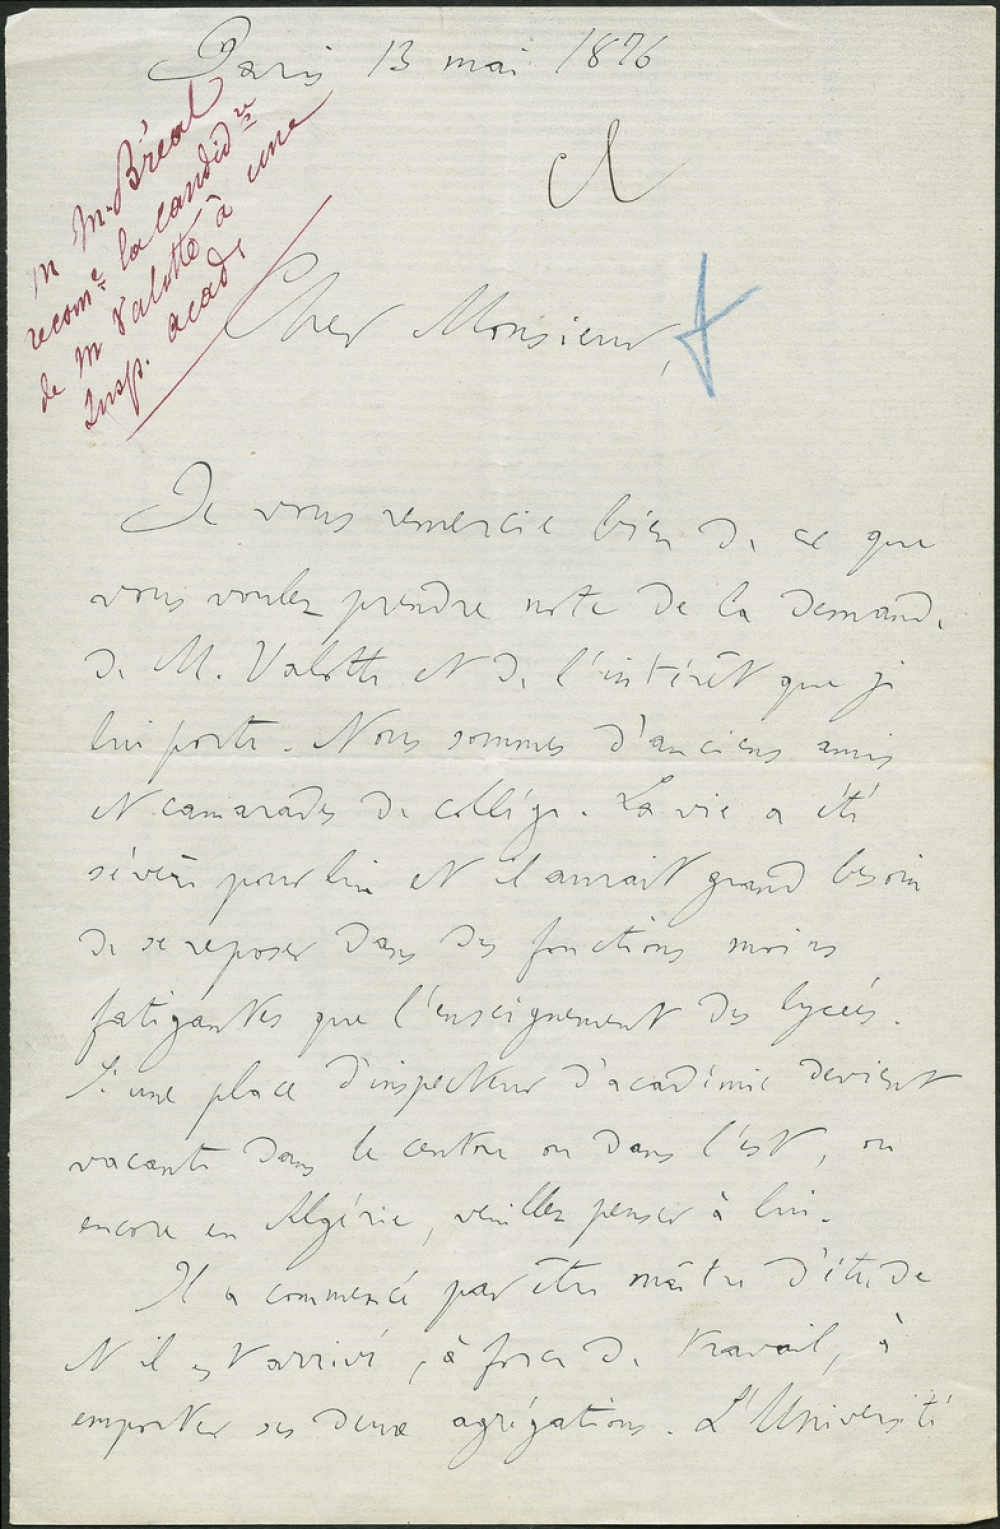 Paris 13 mai 1876
Cl
M M. Bréal
recom.e la candid.re
de M Valotte à une
Insp. acad.
Cher Monsieur,
Je vous remercie bien de ce que
vous voulez prendre note de la demande
de M. Valotte et de l'intérêt que je
lui porte. Nous sommes d'anciens amis
et camarades de collége. La vie a été
sévère pour lui et il aurait grand besoin
de se reposer dans des fonctions moins
fatigantes que l'enseignement des lycées.
Si une place d'inspecteur d'académie devient
vacante dans le centre ou dans l'est, ou
encore en Algérie, veuillez penser à lui.
Il a commencé par être maître d'étude
et il est arrivé, à force de travail, à
emporter ses deux agrégations. L'Université